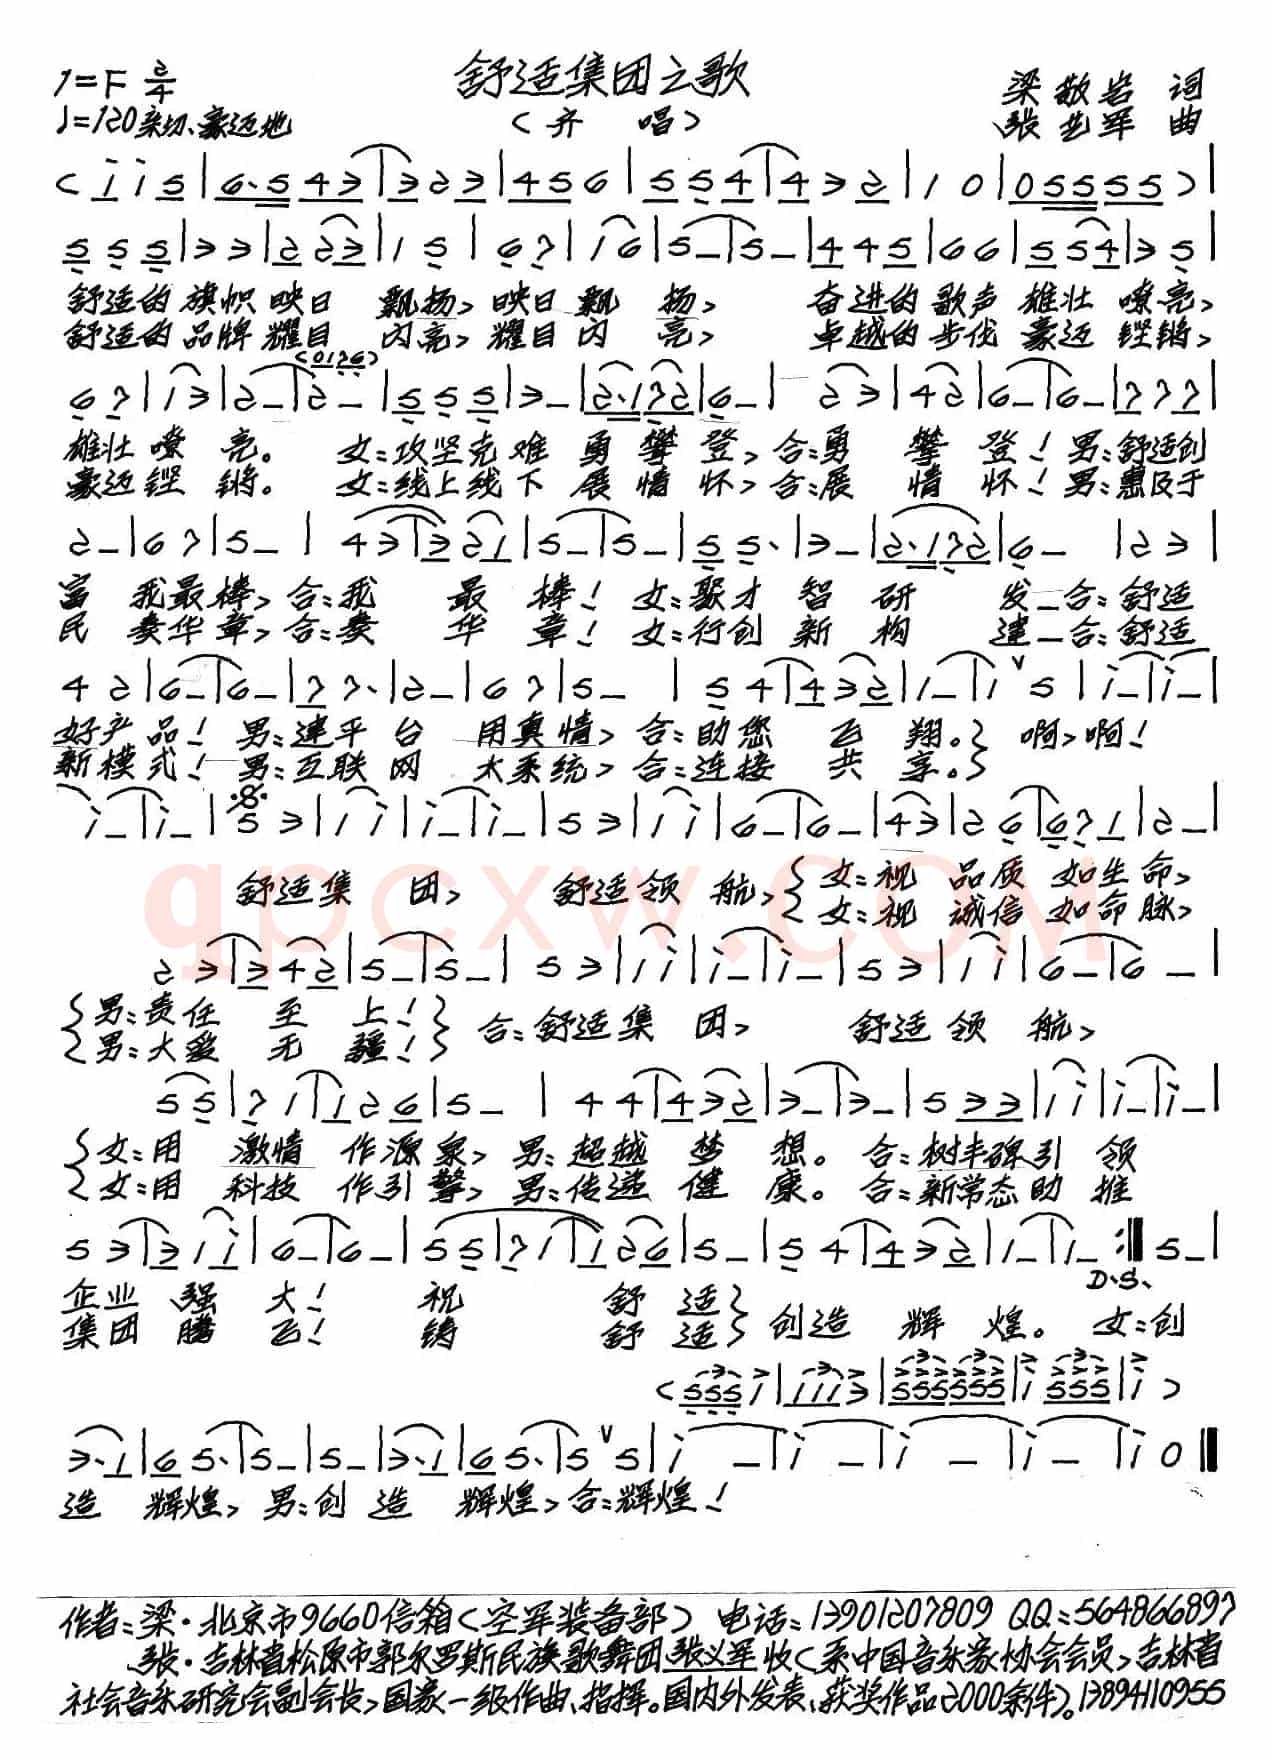 舒适集团之歌
1=F 2/4
♩=120亲切、豪迈地
(齐 唱)
梁敬岩 词
张艺军 曲
舒适的旗帜映日 飘扬,映日飘 扬, 奋进的歌声雄壮嘹亮,
舒适的品牌耀目 闪亮,耀目闪 亮, 卓越的步伐豪迈铿锵,
雄壮嘹 亮。 女:攻坚克难勇攀登,合:勇 攀 登!男:舒适创
豪迈铿 锵。 女:线上线下展情怀,合:展 情 怀!男:惠及于
富 我最棒,合:我 最 棒!女:聚才智研 发—合:舒适
民 奏华章,合:奏 华 章!女:行创新构 建—合:舒适
好产品!男:建平台 用真情,合:助您 飞 翔。 啊,啊!
新模式!男:互联网 大系统,合:连接 共 享。
舒适集 团, 舒适领 航, 女:视 品质 如生命,
女:视 诚信 如命脉,
qpcxw.com
男:责任 至 上! 合:舒适集 团, 舒适领 航,
男:大爱 无 疆!
女:用 激情 作源泉,男:超越 梦 想。合:树丰碑引 领
女:用 科技 作引擎,男:传递 健 康。合:新常态助 推
企业 强 大! 祝 舒 适 创造 辉 煌。 女:创
集团 腾 飞! 铸 舒 适
D.S.
造 辉煌,男:创 造 辉煌,合:辉煌!
作者:梁·北京市9660信箱(空军装备部) 电话:13901207809 QQ:564866897
张·吉林省松原市郭尔罗斯民族歌舞团张义军收(系中国音乐家协会会员,吉林省
社会音乐研究会副会长,国家一级作曲、指挥。国内外发表、获奖作品2000余件)。13894110955